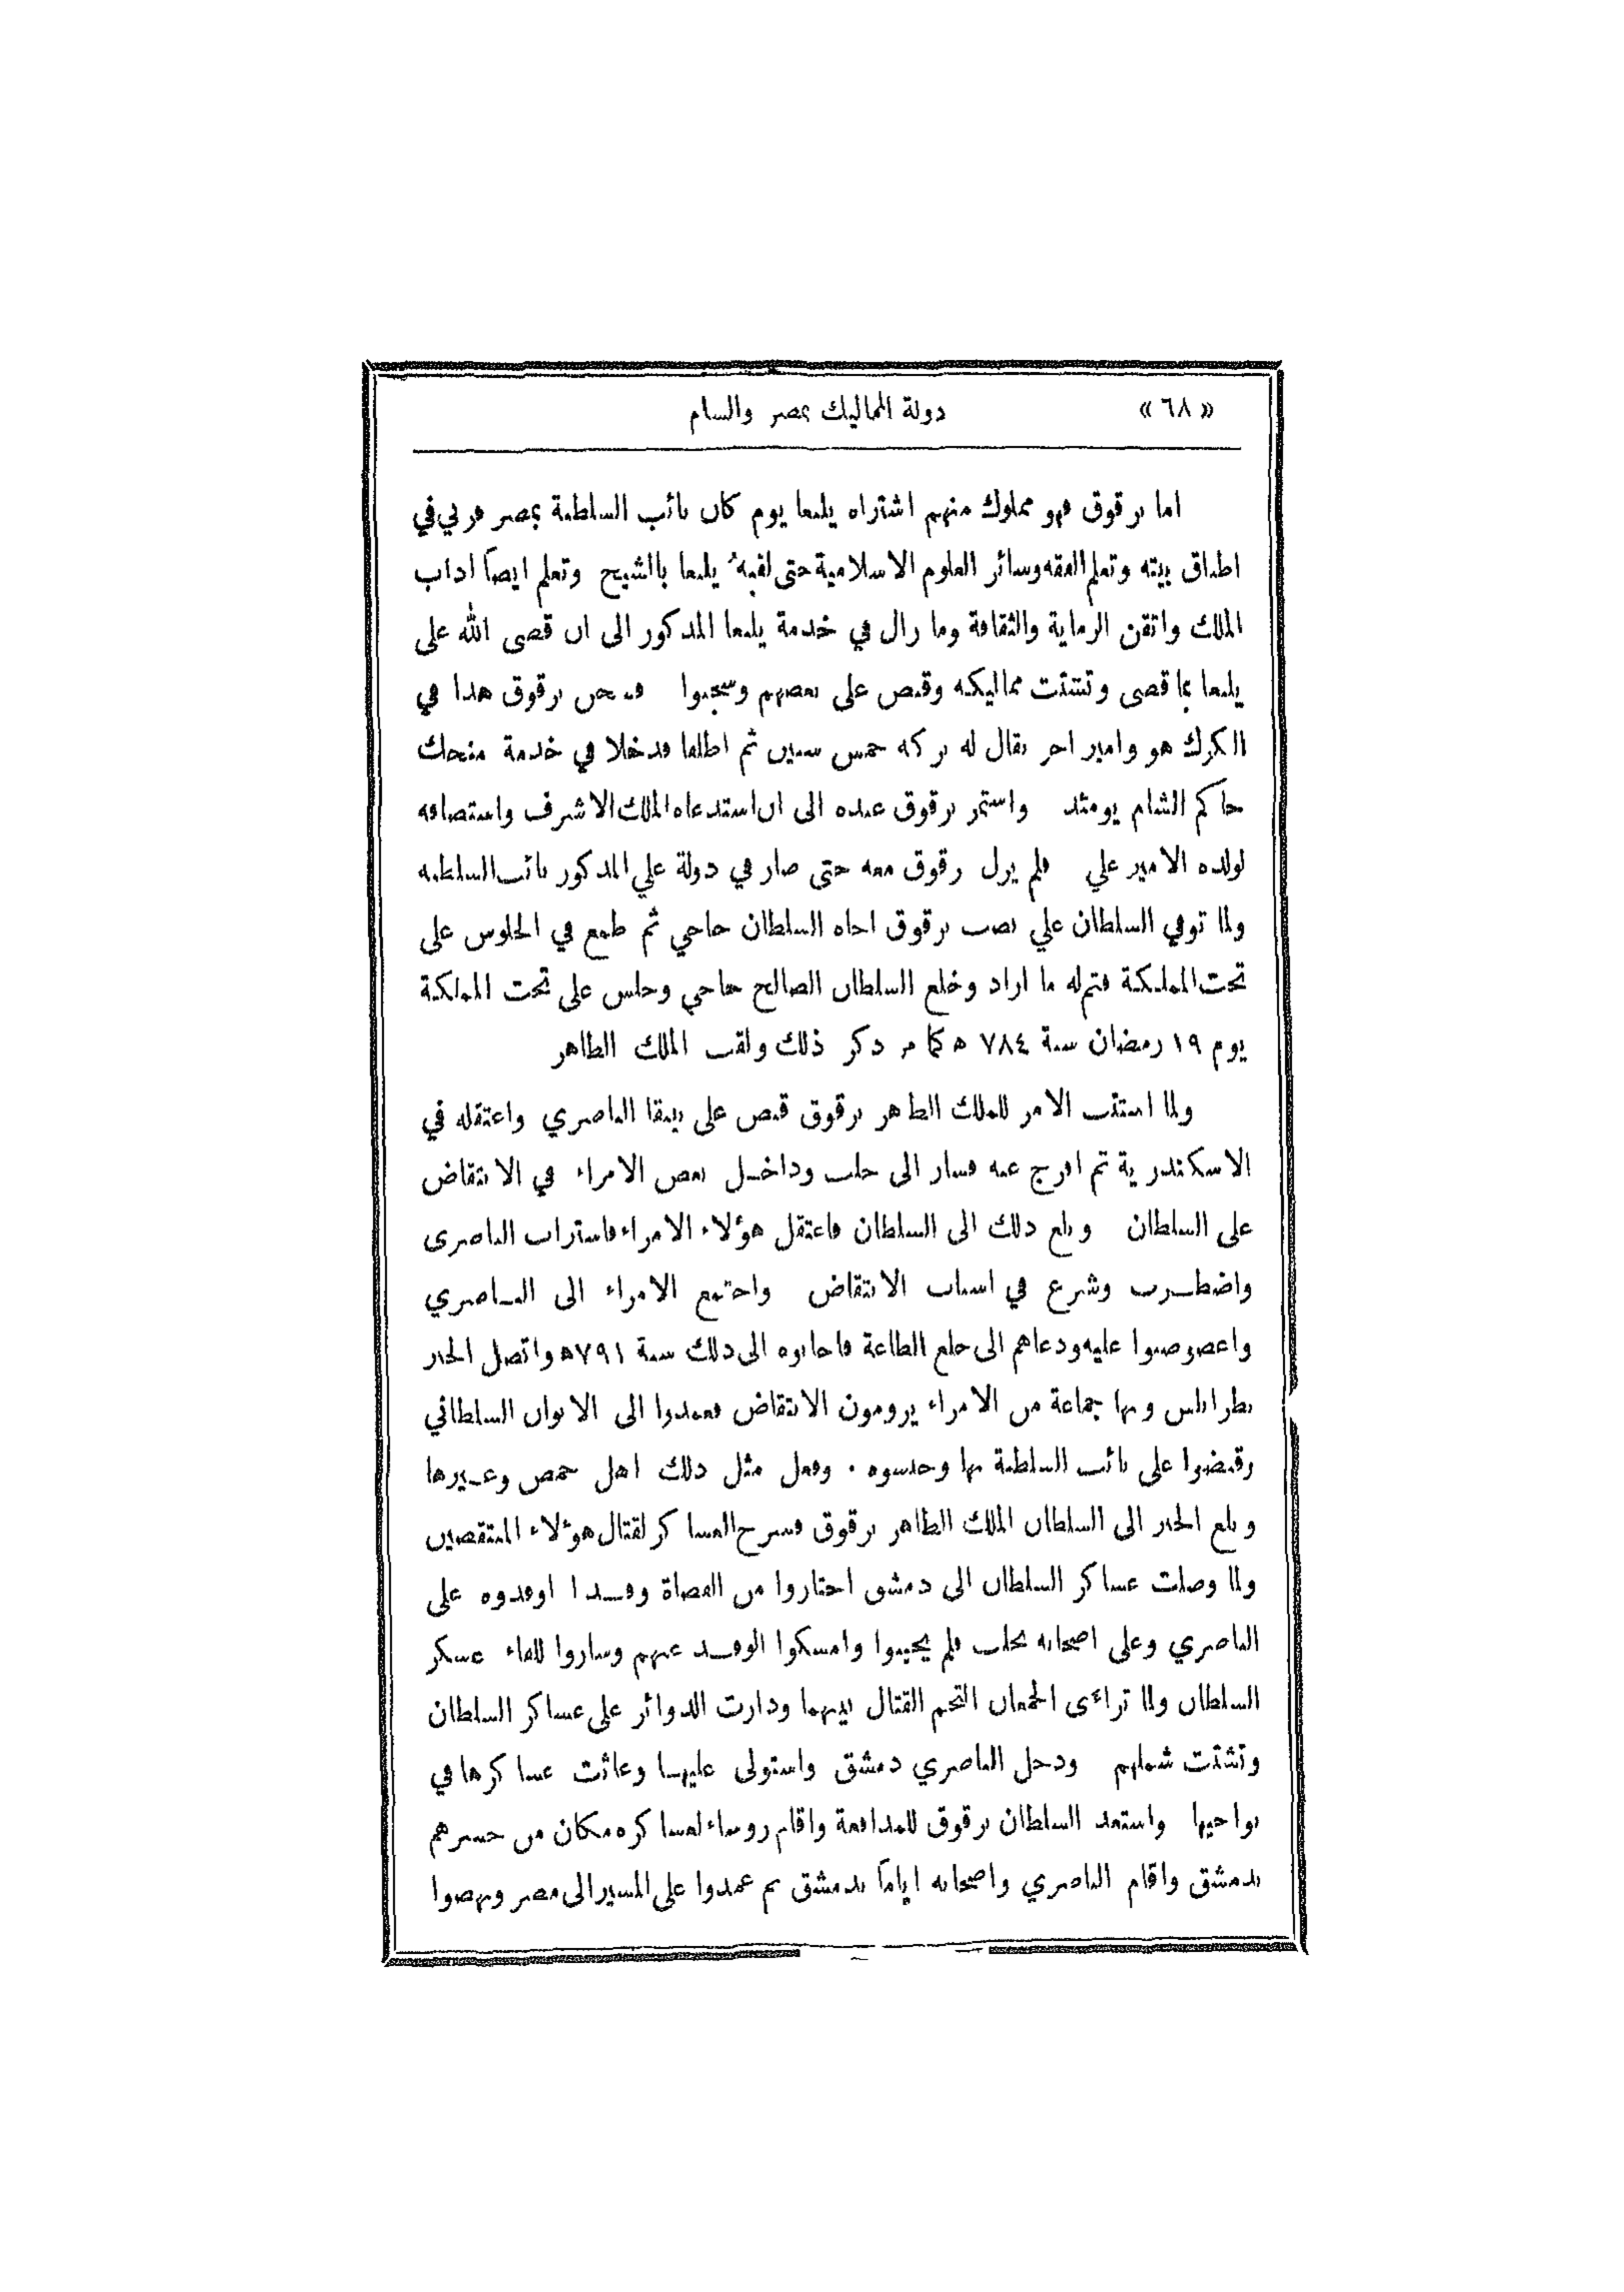 «٦٨» دولة المماليك بمصر والشام
اما برقوق فهو مملوك منهم اشتراه يلبغا يوم كان نائب السلطنة بمصر فربي في
اطباق بيته وتعلم الفقه وسائر العلوم الاسلامية حتى لقبهُ يلبغا بالشيخ وتعلم ايضاً اداب
الملك واتقن الرماية والثقافة وما زال في خدمة يلبغا المذكور الى ان قضى الله على
يلبغا بما قضى وتشتتت مماليكه وقبض على بعضهم وسجنوا فسجن برقوق هذا في
الكرك هو وامير اخر يقال له بركه خمس سنين ثم اطلقا فدخلا في خدمة منجك
حاكم الشام يومئذ واستمر برقوق عنده الى ان استدعاه الملك الاشرف واستضافه
لولده الامير علي فلم يزل برقوق معه حتى صار في دولة علي المذكور نائب السلطنه
ولما توفي السلطان علي نصب برقوق اخاه السلطان حاجي ثم طمع في الجلوس على
تحت المملكة فتم له ما اراد وخلع السلطان الصالح حاجي وجلس على تحت المملكة
يوم ١٩ رمضان سنة ٧٨٤ ه كما مر ذكر ذلك ولقب الملك الظاهر
ولما استتب الامر للملك الظاهر برقوق قبض على يبقا الناصري واعتقله في
الاسكندرية ثم افرج عنه فسار الى حلب وداخل بعض الامراء في الانتقاض
على السلطان وبلغ ذلك الى السلطان فاعتقل هؤلاء الامراء فاستراب الناصرى
واضطرب وشرع في اسباب الانتقاض واجتمع الامراء الى الناصري
واعصوصبوا عليه ودعاهم الى خلع الطاعة فاجابوه الى ذلك سنة ٧٩١ه واتصل الخبر
بطرابلس وبها جماعة من الامراء يرومون الانتقاض فعمدوا الى الايوان السلطاني
وقبضوا على نائب السلطنة بها وحبسوه . وفعل مثل ذلك اهل حمص وغيرها
وبلغ الخبر الى السلطان الملك الظاهر برقوق فسرح العساكر لقتال هؤلاء المنتقضين
ولما وصلت عساكر السلطان الى دمشق اختاروا من القضاة وفدا اوفدوه على
الناصري وعلى اصحابه بحلب فلم يجيبوا وامسكوا الوفد عنهم وساروا للقاء عسكر
السلطان ولما تراءى الجمعان التحم القتال بينهما ودارت الدوائر على عساكر السلطان
وتشتت شملهم ودخل الناصري دمشق واستولى عليها وعاثت عساكرها في
نواحيها واستعد السلطان برقوق للمدافعة واقام روساء لعساكره مكان من خسرهم
بدمشق واقام الناصري واصحابه اياماً بدمشق ثم عمدوا على المسير الى مصر ونهضوا